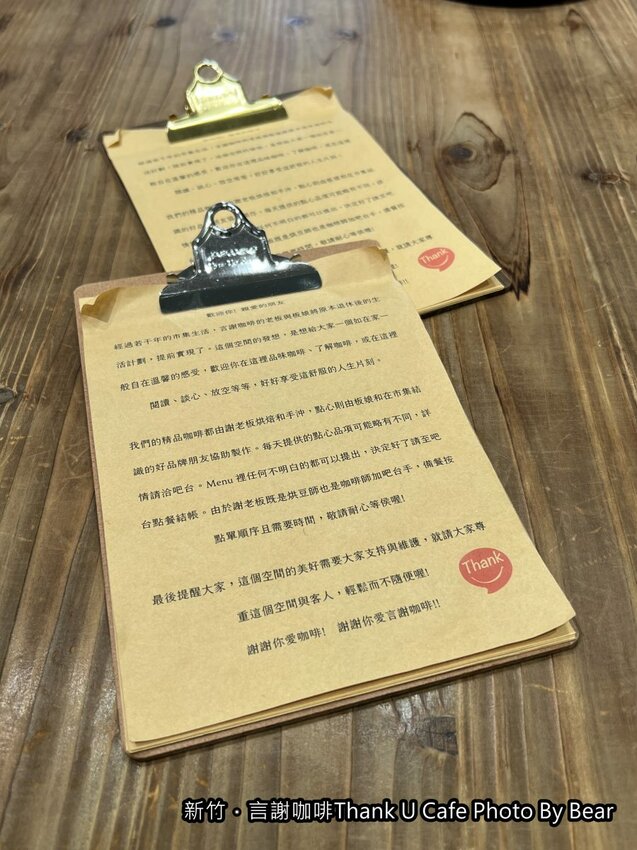 歡迎你! 親愛的朋友
經過若干年的市集生活，言謝咖啡的老板與板娘將原本退休後的生
活計劃，提前實現了。這個空間的發想，是想給大家一個如在家一
般自在溫馨的感受，歡迎你在這裡品味咖啡、了解咖啡，或在這裡
閱讀、談心、放空等等，好好享受這舒服的人生片刻。
我們的精品咖啡都由謝老板烘焙和手沖，點心則由板娘和在市集結
識的好品牌朋友協助製作。每天提供的點心品項可能略有不同，詳
情請洽吧台。Menu 裡任何不明白的都可以提出，決定好了請至吧
台點餐結帳。由於謝老板既是烘豆師也是咖啡師加吧台手，備餐按
點單順序且需要時間，敬請耐心等侯喔!
最後提醒大家，這個空間的美好需要大家支持與維護，就請大家尊
重這個空間與客人，輕鬆而不隨便喔!
謝謝你愛咖啡! 謝謝你愛言謝咖啡!!
Thank
Thank
新竹‧言謝咖啡Thank U Cafe Photo By Bear